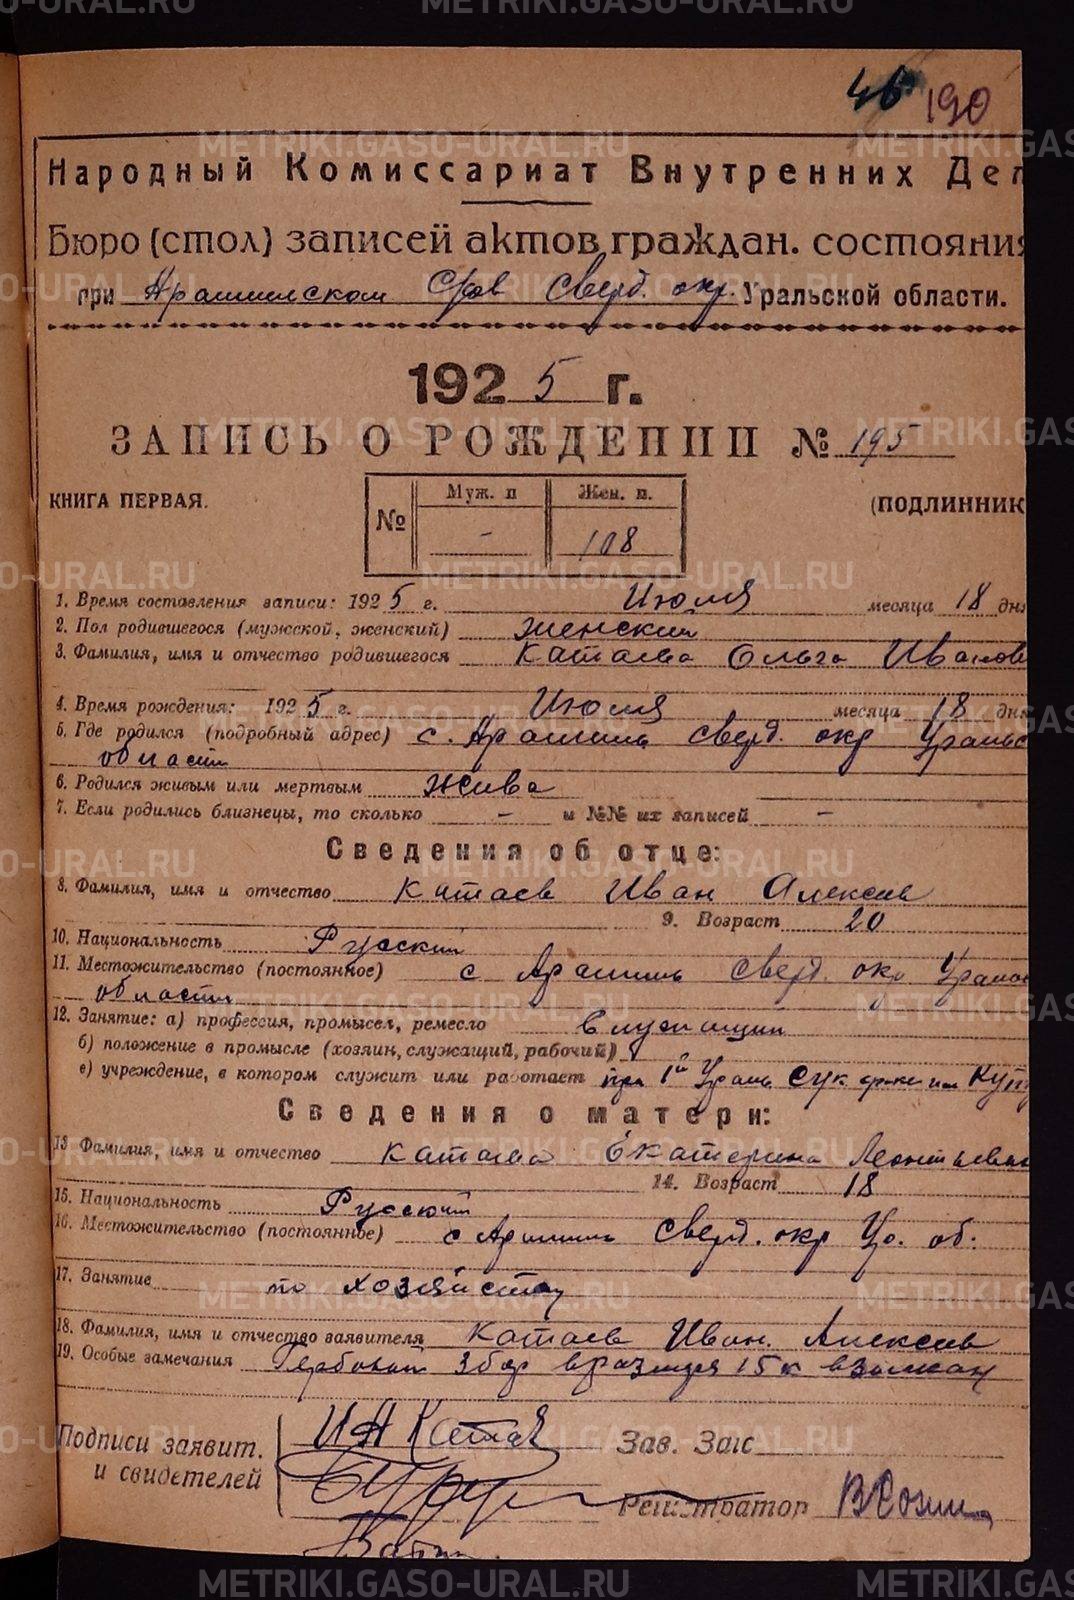 46 190
Народный Комиссариат Внутренних Дел
Бюро (стол) записей актов граждан. состояния
при Арамильском Сверд. окр. Уральской области.
1925 г.
ЗАПИСЬ О РОЖДЕНИИ № 195
КНИГА ПЕРВАЯ. (ПОДЛИННИК
№ Муж. п Жен. п.
- 108
1. Время составления записи: 1925 г. Июля месяца 18 дня
2. Пол родившегося (мужской, женский) женский
3. Фамилия, имя и отчество родившегося Катаева Ольга Иванов
4. Время рождения: 1925 г. Июля месяца 18 дня
5. Где родился (подробный адрес) с. Арамиль Сверд. окр Уральс
области
6. Родился живым или мертвым жива
7. Если родились близнецы, то сколько - и №№ их записей -
Сведения об отце:
8. Фамилия, имя и отчество Катаев Иван Алексеев
9. Возраст 20
10. Национальность Русский
11. Местожительство (постоянное) с Арамиль Сверд. окр Уральс
области
12. Занятие: а) профессия, промысел, ремесло
б) положение в промысле (хозяин, служащий, рабочий)
в) учреждение, в котором служит или работает при 1й Ураль сук
Сведения о матери:
13 Фамилия, имя и отчество Катаева Екатерина Леонтьевна
14. Возраст 18
15. Национальность Русский
16. Местожительство (постоянное) с Арамиль Сверд. окр Ур. об.
17. Занятие по хозяйству
18. Фамилия, имя и отчество заявителя Катаев Иван Алексеев
19. Особые замечания Гербовый Збор в размере 15 к взыскан
Подписи заявит. И А Катаев Зав. Загс
и свидетелей Регистратор
METRIKI.GASO-URAL.RU